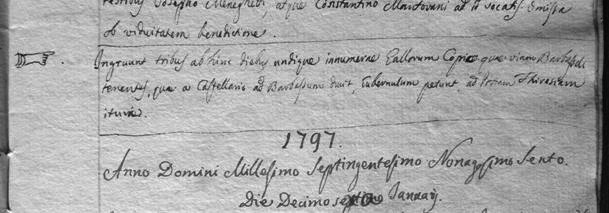 testibus Josepho Meneghelli, atque Constantino Mantovani ad id vocatis omissa
ob viduitatem benedictione.
Ingruunt tribus ab hinc diebus undique innumerae Gallorum Copiae, que viam
tenentes, quae a Castellario ad Barbassum ducit, Gubernulum petunt ad
iturae.
1797.
Anno Domini Millesimo Septingentesimo Nonagesimo Sexto.
Die Decimosepto Januarij